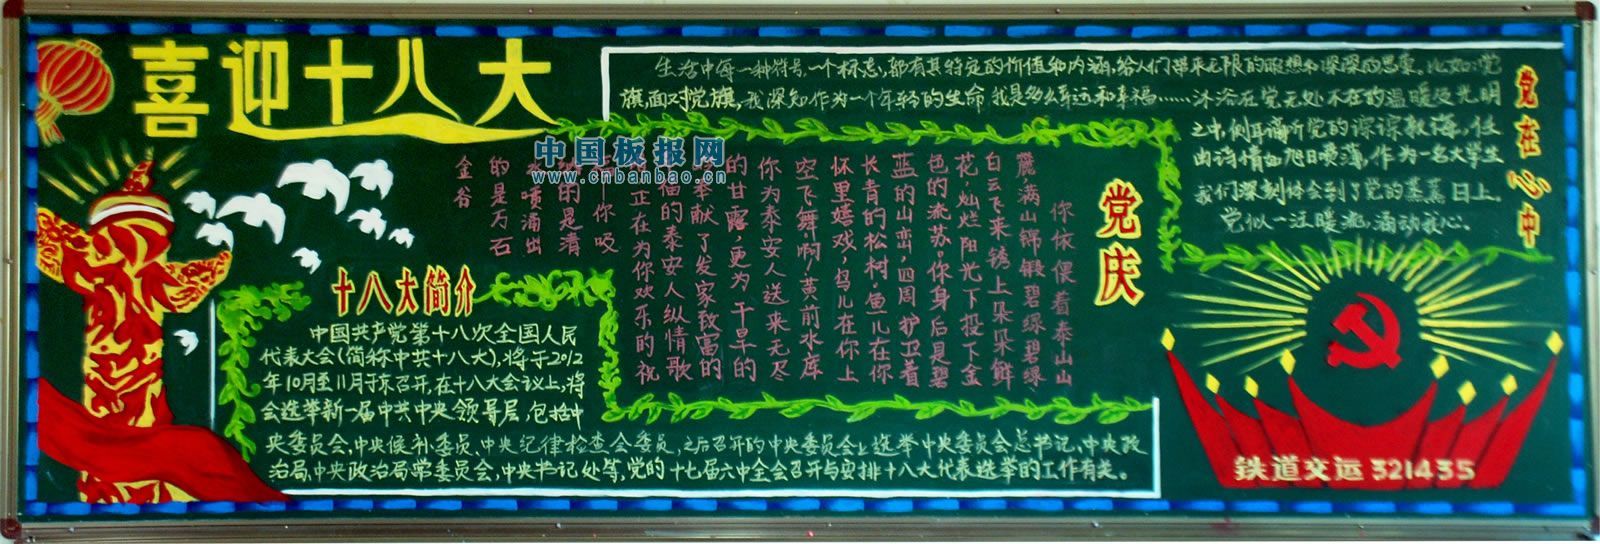 喜迎十八大
生活中每一种符号,一个标志,都有其特定的价值和内涵,给人们带来无限的联想和深深的思索。比如:党
旗面对党旗,我深知作为一个年轻的生命 我是多么幸运和幸福……沐浴在党无处不在的温暖及光明
之中,侧耳谛听党的谆谆教诲,任
由诗情如旭日喷薄,作为一名大学生
我们深刻体会到了党的蒸蒸日上。
党似一汪暖流,涌动我心。
党在心中
中国板报网
www.cnbanbao.cn
党庆
你依偎着泰山山
麓满山锦锻碧绿碧绿
白云飞来锈上朵朵鲜
花,灿烂阳光下投下金
色的流苏。你身后是碧
蓝的山峦,四周护卫着
长青的松树,鱼儿在你
怀里嬉戏,鸟儿在你上
空飞舞啊!黄前水库
你为泰安人送来无尽
的甘露,更为干旱的
奉献了发家致富的
福的泰安人纵情歌
正在为你欢乐的祝
你吸
的是清
喷涌出
的是万石
金谷
十八大简介
中国共产党第十八次全国人民
代表大会(简称中共十八大),将于2012
年10月至11月于京召开,在十八大会议上,将
会选举新一届中共中央领导层,包括中
央委员会,中央候补委员,中央纪律检查会委员,之后召开的中央委员会上选举中央委员会总书记,中央政
治局,中央政治局常委员会,中央书记处等,党的十七届六中全会召开与安排十八大代表选举的工作有关。
铁道交运321435